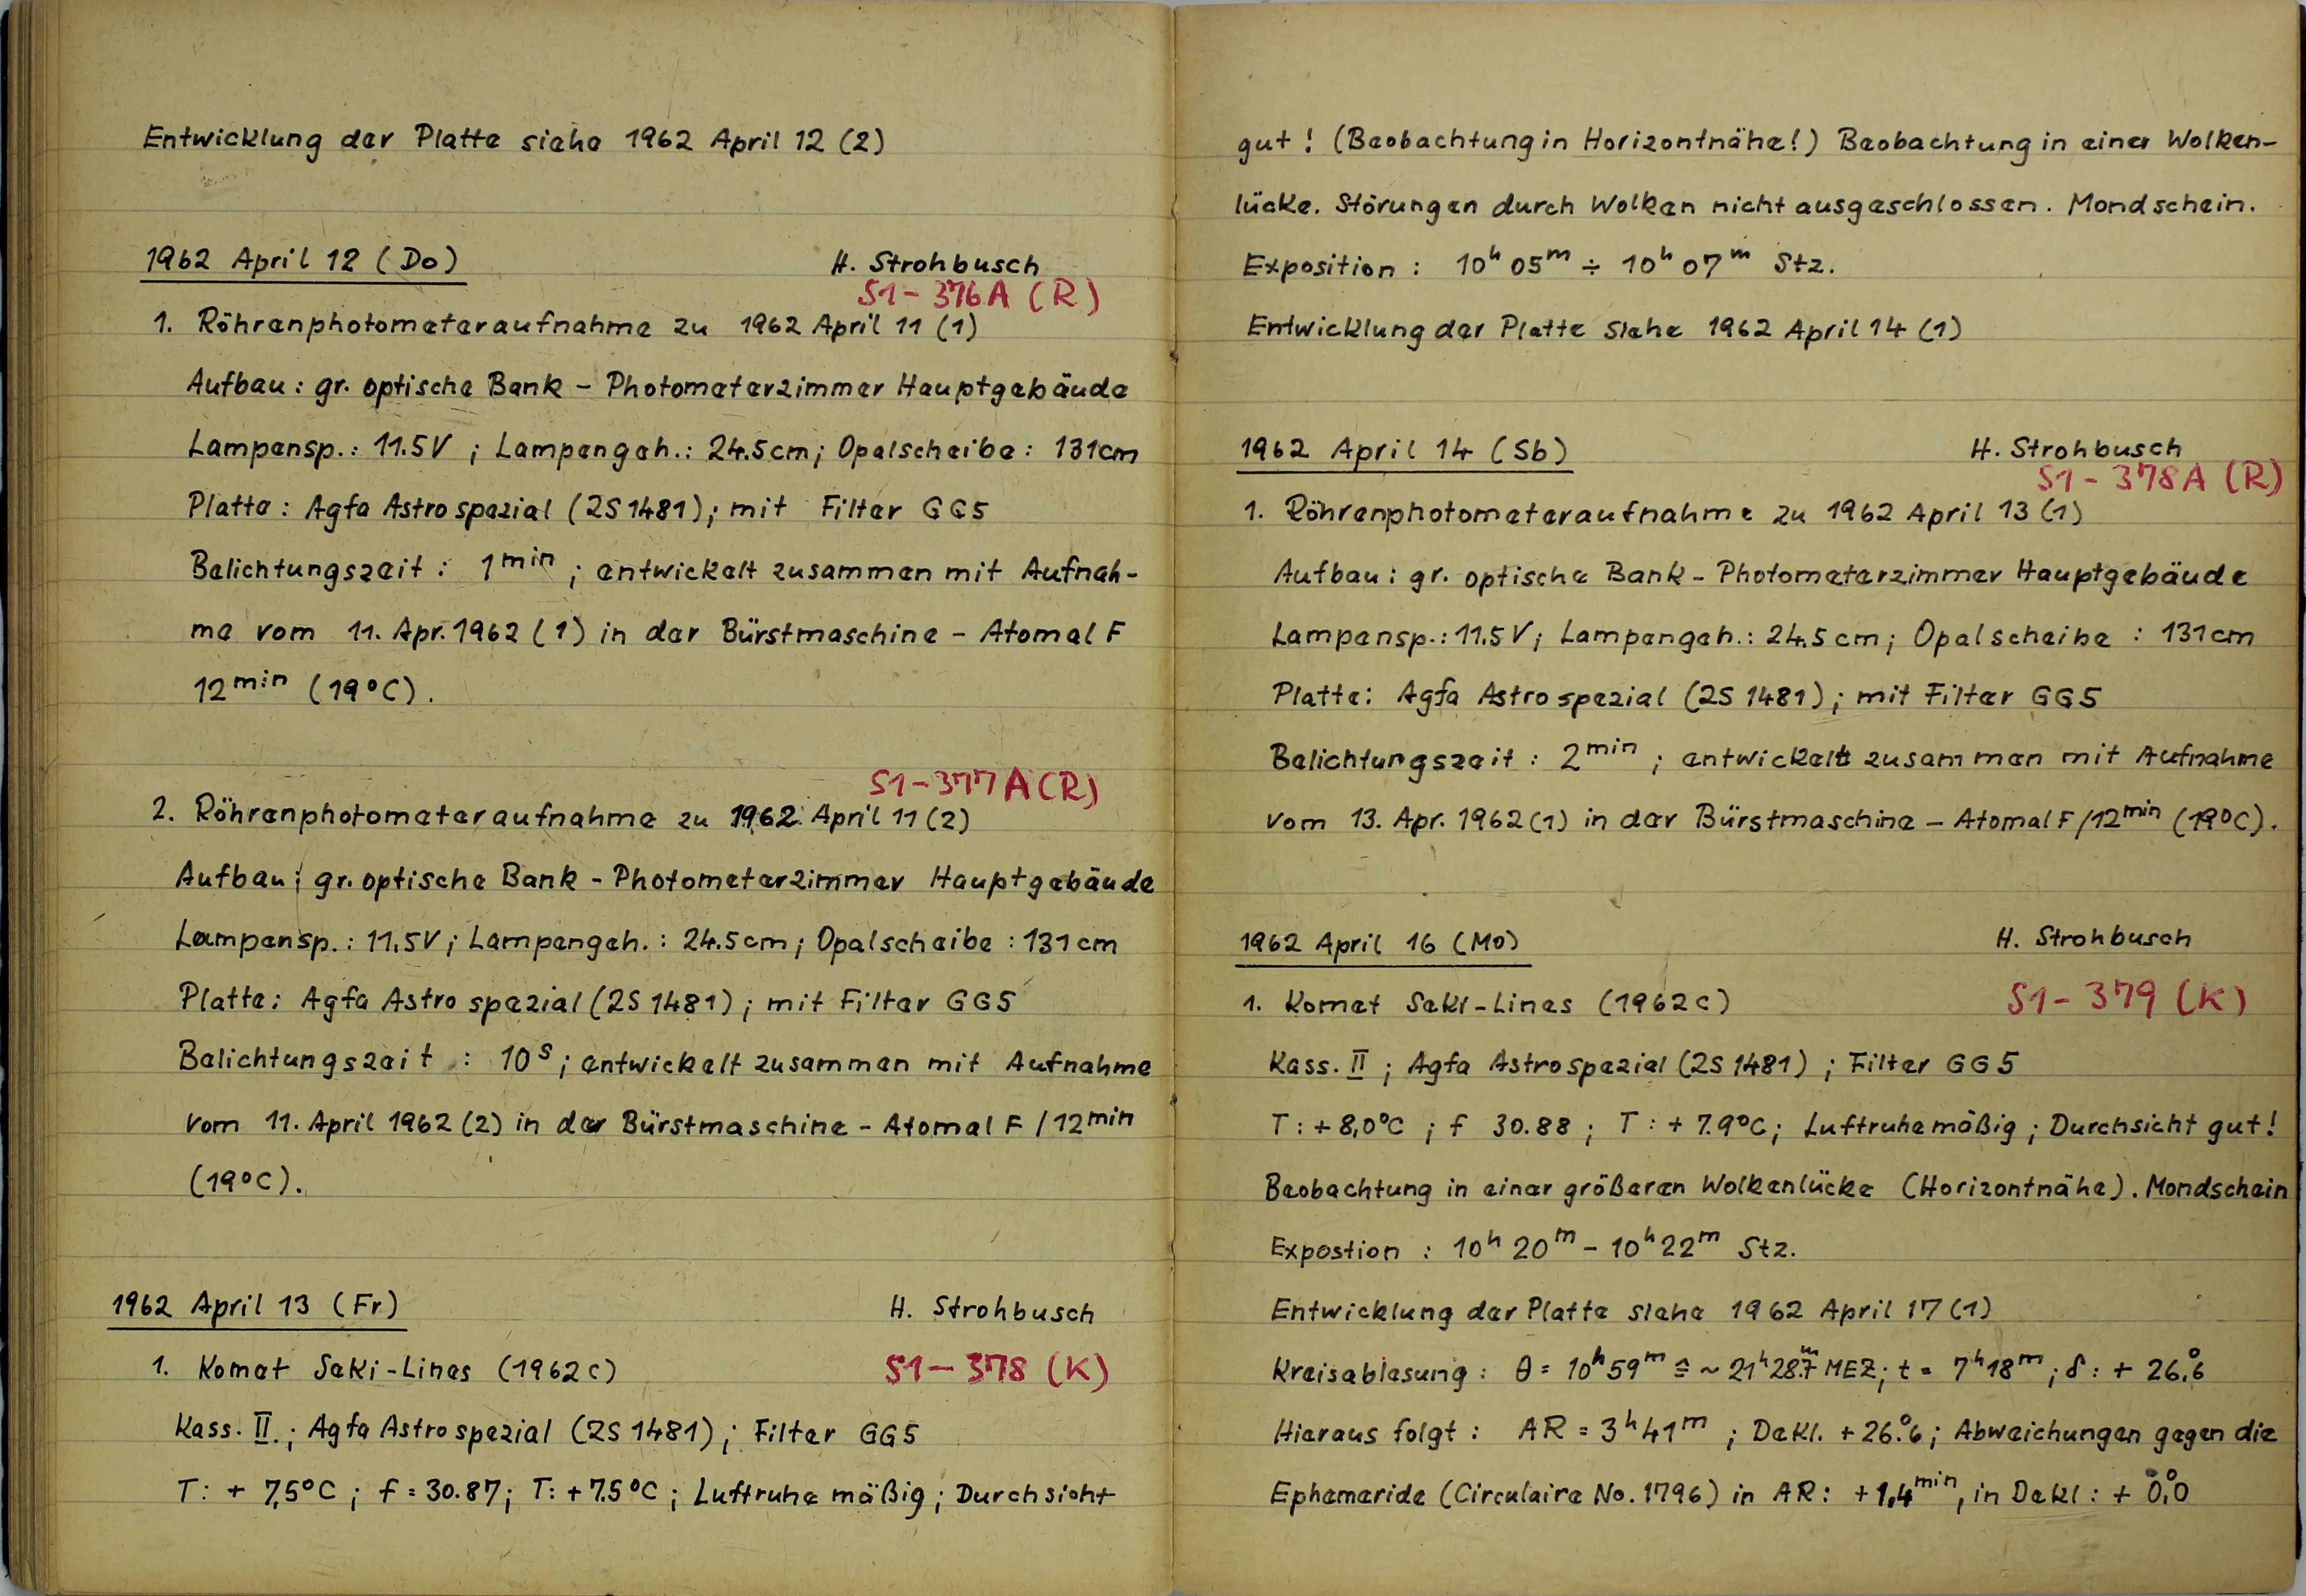 Entwicklung der Platte siehe 1962 April 12 (2)
1962 April 12 (Do)
H. Strohbusch
S1 - 376A (R)
1. Röhrenphotometeraufnahme zu 1962 April 11 (1)
Aufbau: gr. optische Bank - Photometerzimmer Hauptgebäude
Lampensp.: 11.5V ; Lampengeh.: 24.5cm; Opalscheibe: 131cm
Platte: Agfa Astro spezial (2S 1481); mit Filter GG5
Belichtungszeit: 1min ; entwickelt zusammen mit Aufnah-
me vom 11. Apr. 1962 (1) in der Bürstmaschine - Atomal F
12min (19°C).
S1-377A (R)
2. Röhrenphotometeraufnahme zu 1962 April 11 (2)
Aufbau: gr. optische Bank - Photometerzimmer Hauptgebäude
Lampensp.: 11.5V; Lampengeh.: 24.5cm; Opalscheibe: 131cm
Platte: Agfa Astro spezial (2S 1481); mit Filter GG5
Belichtungszeit : 10s; entwickelt zusammen mit Aufnahme
vom 11. April 1962 (2) in der Bürstmaschine - Atomal F /12min
(19°C).
1962 April 13 (Fr)
H. Strohbusch
1. Komet Seki-Lines (1962c)
S1-378 (K)
Kass. II.; Agfa Astro spezial (2S 1481); Filter GG5
T: + 7,5°C ; f = 30.87; T: +7.5°C ; Luftruhe mäßig; Durchsicht
gut! (Beobachtung in Horizontnähe!) Beobachtung in einer Wolken-
lücke. Störungen durch Wolken nicht ausgeschlossen. Mondschein.
Exposition: 10h 05m ÷ 10h 07m Stz.
Entwicklung der Platte siehe 1962 April 14 (1)
1962 April 14 (Sb)
H. Strohbusch
S1 - 378A (R)
1. Röhrenphotometeraufnahme zu 1962 April 13 (1)
Aufbau: gr. optische Bank - Photometerzimmer Hauptgebäude
Lampensp.: 11.5V; Lampengeh.: 24.5cm; Opalscheibe : 131cm
Platte: Agfa Astro spezial (2S 1481); mit Filter GG5
Belichtungszeit : 2min ; entwickelt zusammen mit Aufnahme
vom 13. Apr. 1962 (1) in der Bürstmaschine - Atomal F /12min (19°C).
1962 April 16 (Mo)
H. Strohbusch
1. Komet Seki-Lines (1962c)
S1-379 (K)
Kass. II ; Agfa Astro spezial (2S 1481) ; Filter GG5
T: + 8,0°C ; f 30.88 ; T: + 7.9°C; Luftruhe mäßig; Durchsicht gut!
Beobachtung in einer größeren Wolkenlücke (Horizontnähe). Mondschein
Expostion : 10h 20m - 10h 22m Stz.
Entwicklung der Platte siehe 1962 April 17 (1)
Kreisablesung: θ = 10h 59m ≙ ~ 21h 28.7m MEZ; t = 7h 18m; δ: + 26.°6
Hieraus folgt: AR = 3h 41m ; Dekl. + 26.°6; Abweichungen gegen die
Ephemeride (Circulaire No. 1796) in AR: + 1,4min, in Dekl: + 0,°0